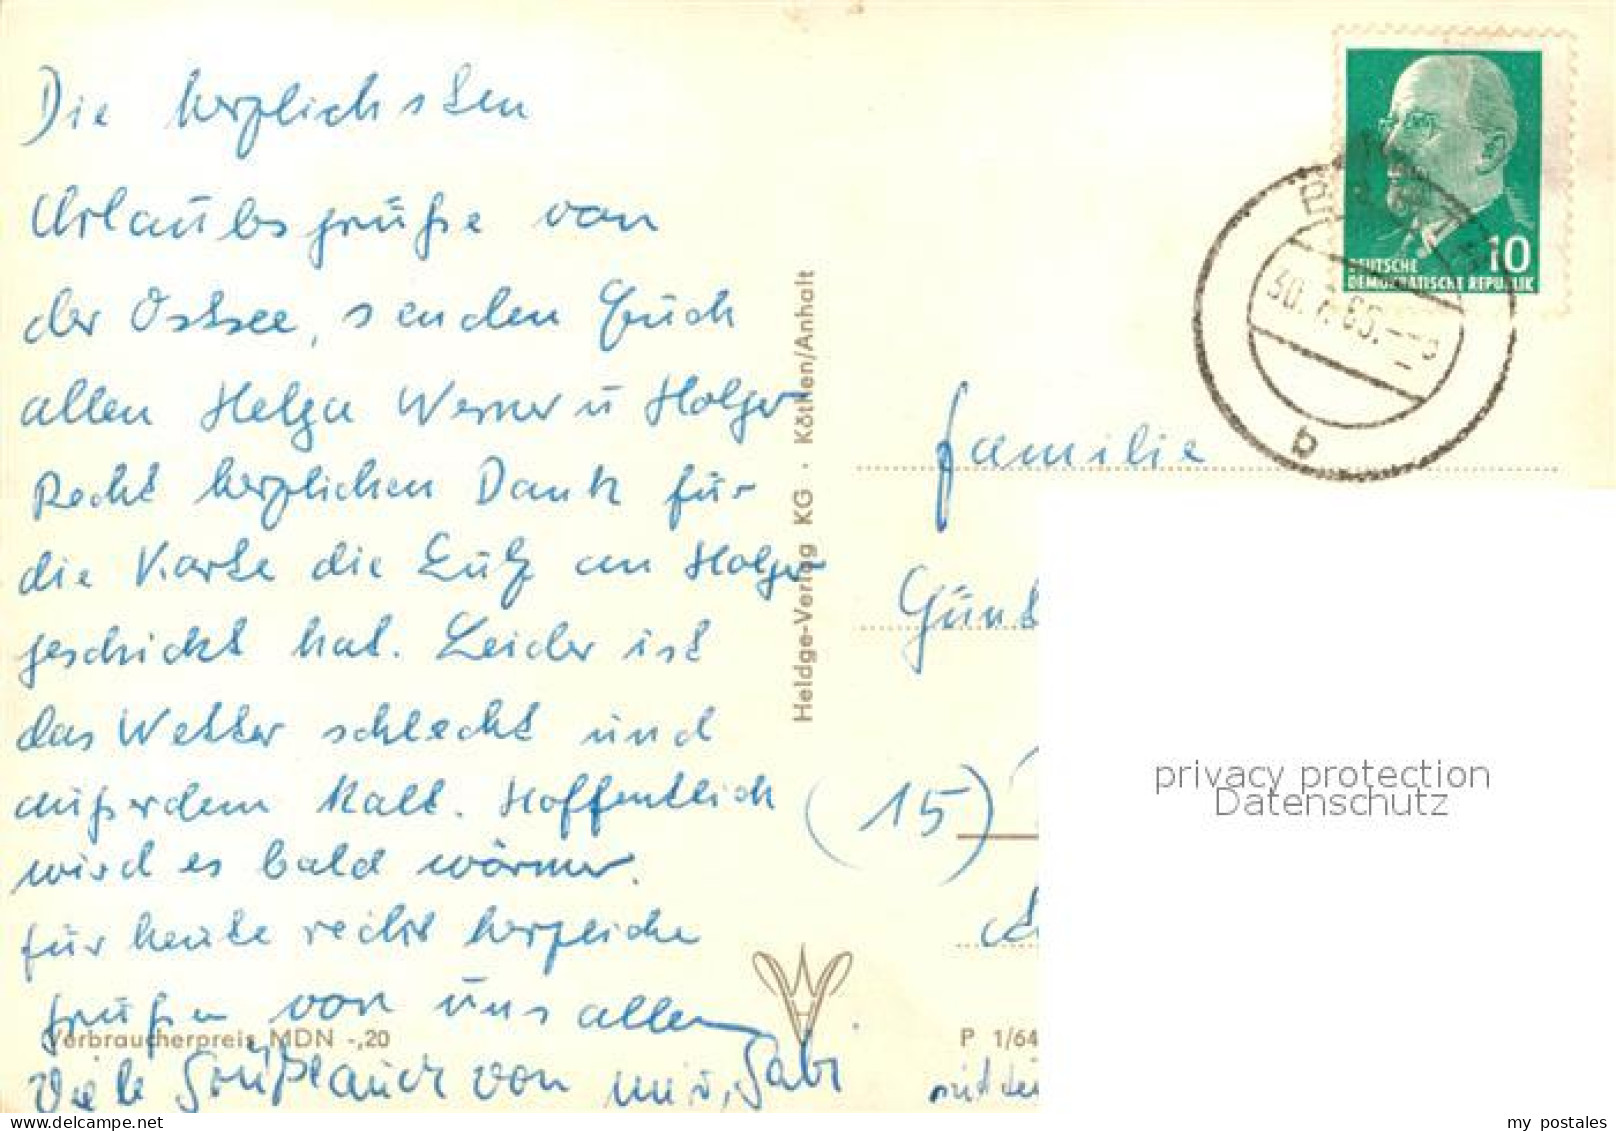 Die herzlichsten
Urlaubsgrüße von
der Ostsee, senden Euch
allen Helga Werner u Holger
Recht herzlichen Dank für
die Karte die Lutz an Holger
geschickt hat. Leider ist
das Wetter schlecht und
außerdem kalt. Hoffentlich
wird es bald wärmer.
für heute recht herzliche
grüßen von uns allen
Viele Grüße auch von mir, Gabi
Verbraucherpreis MDN -,20
Heldge-Verlag KG · Köthen/Anhalt
10
DEUTSCHE
DEMOKRATISCHE REPUBLIK
b
Familie
Günt
(15)
P 1/64
privacy protection
Datenschutz
my postales